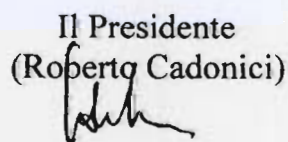 Il Presidente
(Roberto Cadonici)